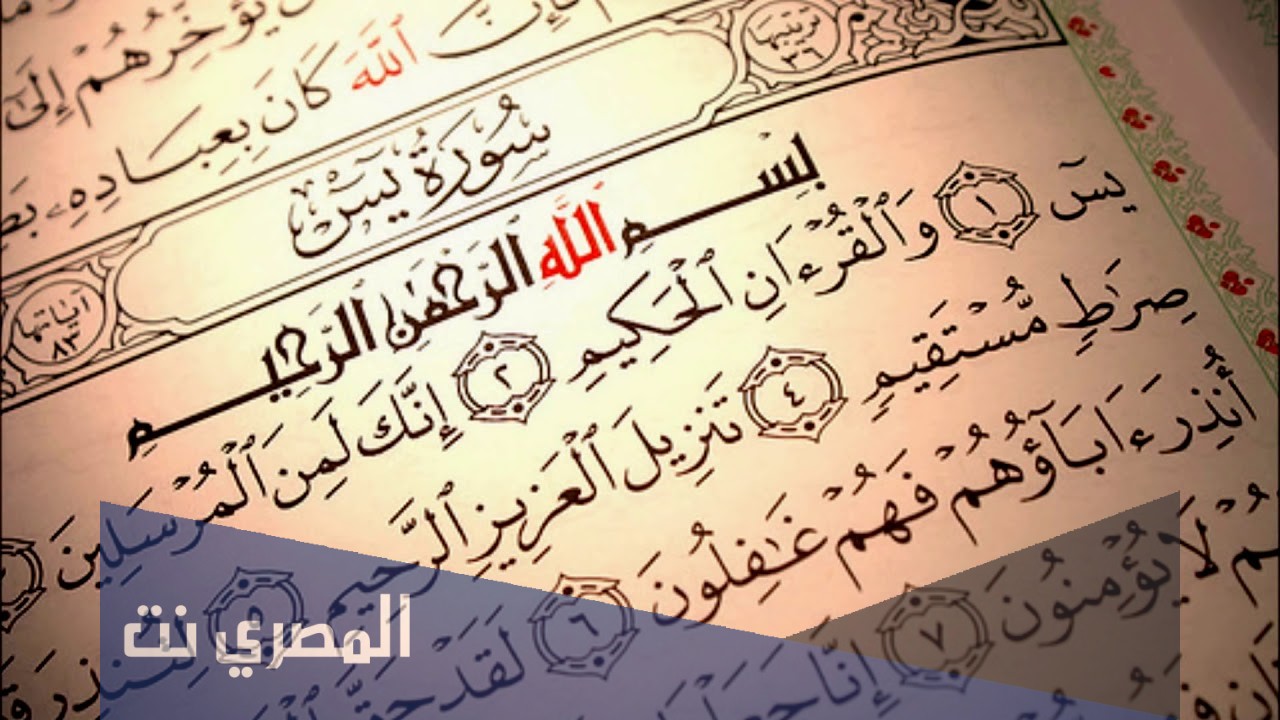 يُؤَخِّرُهُمْ إِلَىٰٓ
فَإِنَّ ٱللَّهَ كَانَ بِعِبَادِهِۦ
ترتيبها ٣٦
سُورَةُ يسٓ
آياتها ٨٣
بِسْمِ ٱللَّهِ ٱلرَّحْمَٰنِ ٱلرَّحِيمِ
يسٓ ١ وَٱلْقُرْءَانِ ٱلْحَكِيمِ ٢ إِنَّكَ لَمِنَ ٱلْمُرْسَلِينَ
صِرَٰطٍ مُّسْتَقِيمٍ ٤ تَنزِيلَ ٱلْعَزِيزِ ٱلرَّحِيمِ ٥ لِتُنذِرَ
أُنذِرَ ءَابَآؤُهُمْ فَهُمْ غَٰفِلُونَ ٦ لَقَدْ حَقَّ
لَا يُؤْمِنُونَ ٧ إِنَّا جَعَلْنَا
المصري نت